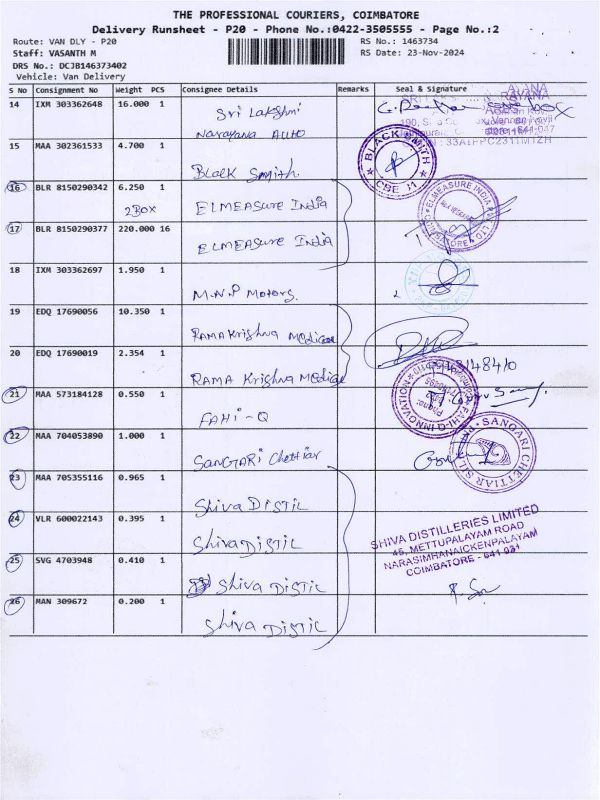 THE PROFESSIONAL COURIERS, COIMBATORE
Delivery Runsheet - P20 - Phone No.:0422-3505555 - Page No.:2
Route: VAN DLY - P20
RS No.: 1463734
Staff: VASANTH M
RS Date: 23-Nov-2024
DRS No.: DCJB146373402
Vehicle: Van Delivery
S No Consignment No Weight PCS Consignee Details Remarks Seal & Signature
14 IXM 303362648 16.000 1 Sri Lakshmi
Narayana Auto
15 MAA 302361533 4.700 1 Black Smith.
BLACK SMITH
CBE
16 BLR 8150290342 6.250 1
2BOX ELMEASURE India
17 BLR 8150290377 220.000 16
ELMEASURE India
ELMEASURE INDIA PVT. LTD
18 IXM 303362697 1.950 1
M.N.P Motors.
19 EDQ 17690056 10.350 1
RAMA Krishna Medical
20 EDQ 17690019 2.354 1
RAMA Krishna Medical
21 MAA 573184128 0.550 1
FAHi-Q
FAHI-Q INNOVATION
22 MAA 704053890 1.000 1
SANGARi Chettiar
SANGARI CHETTIAR
23 MAA 705355116 0.965 1
Shiva DISTIL
24 VLR 600022143 0.395 1
Shiva DISTIL
SHIVA DISTILLERIES LIMITED
45, METTUPALAYAM ROAD
NARASIMHANAICKENPALAYAM
COIMBATORE - 641 031
25 SVG 4703948 0.410 1
Shiva DISTIL
26 MAN 309672 0.200 1
Shiva DISTIL